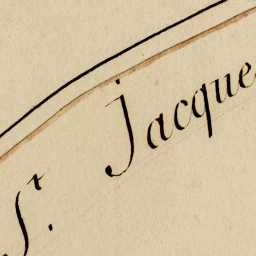 St. Jacque